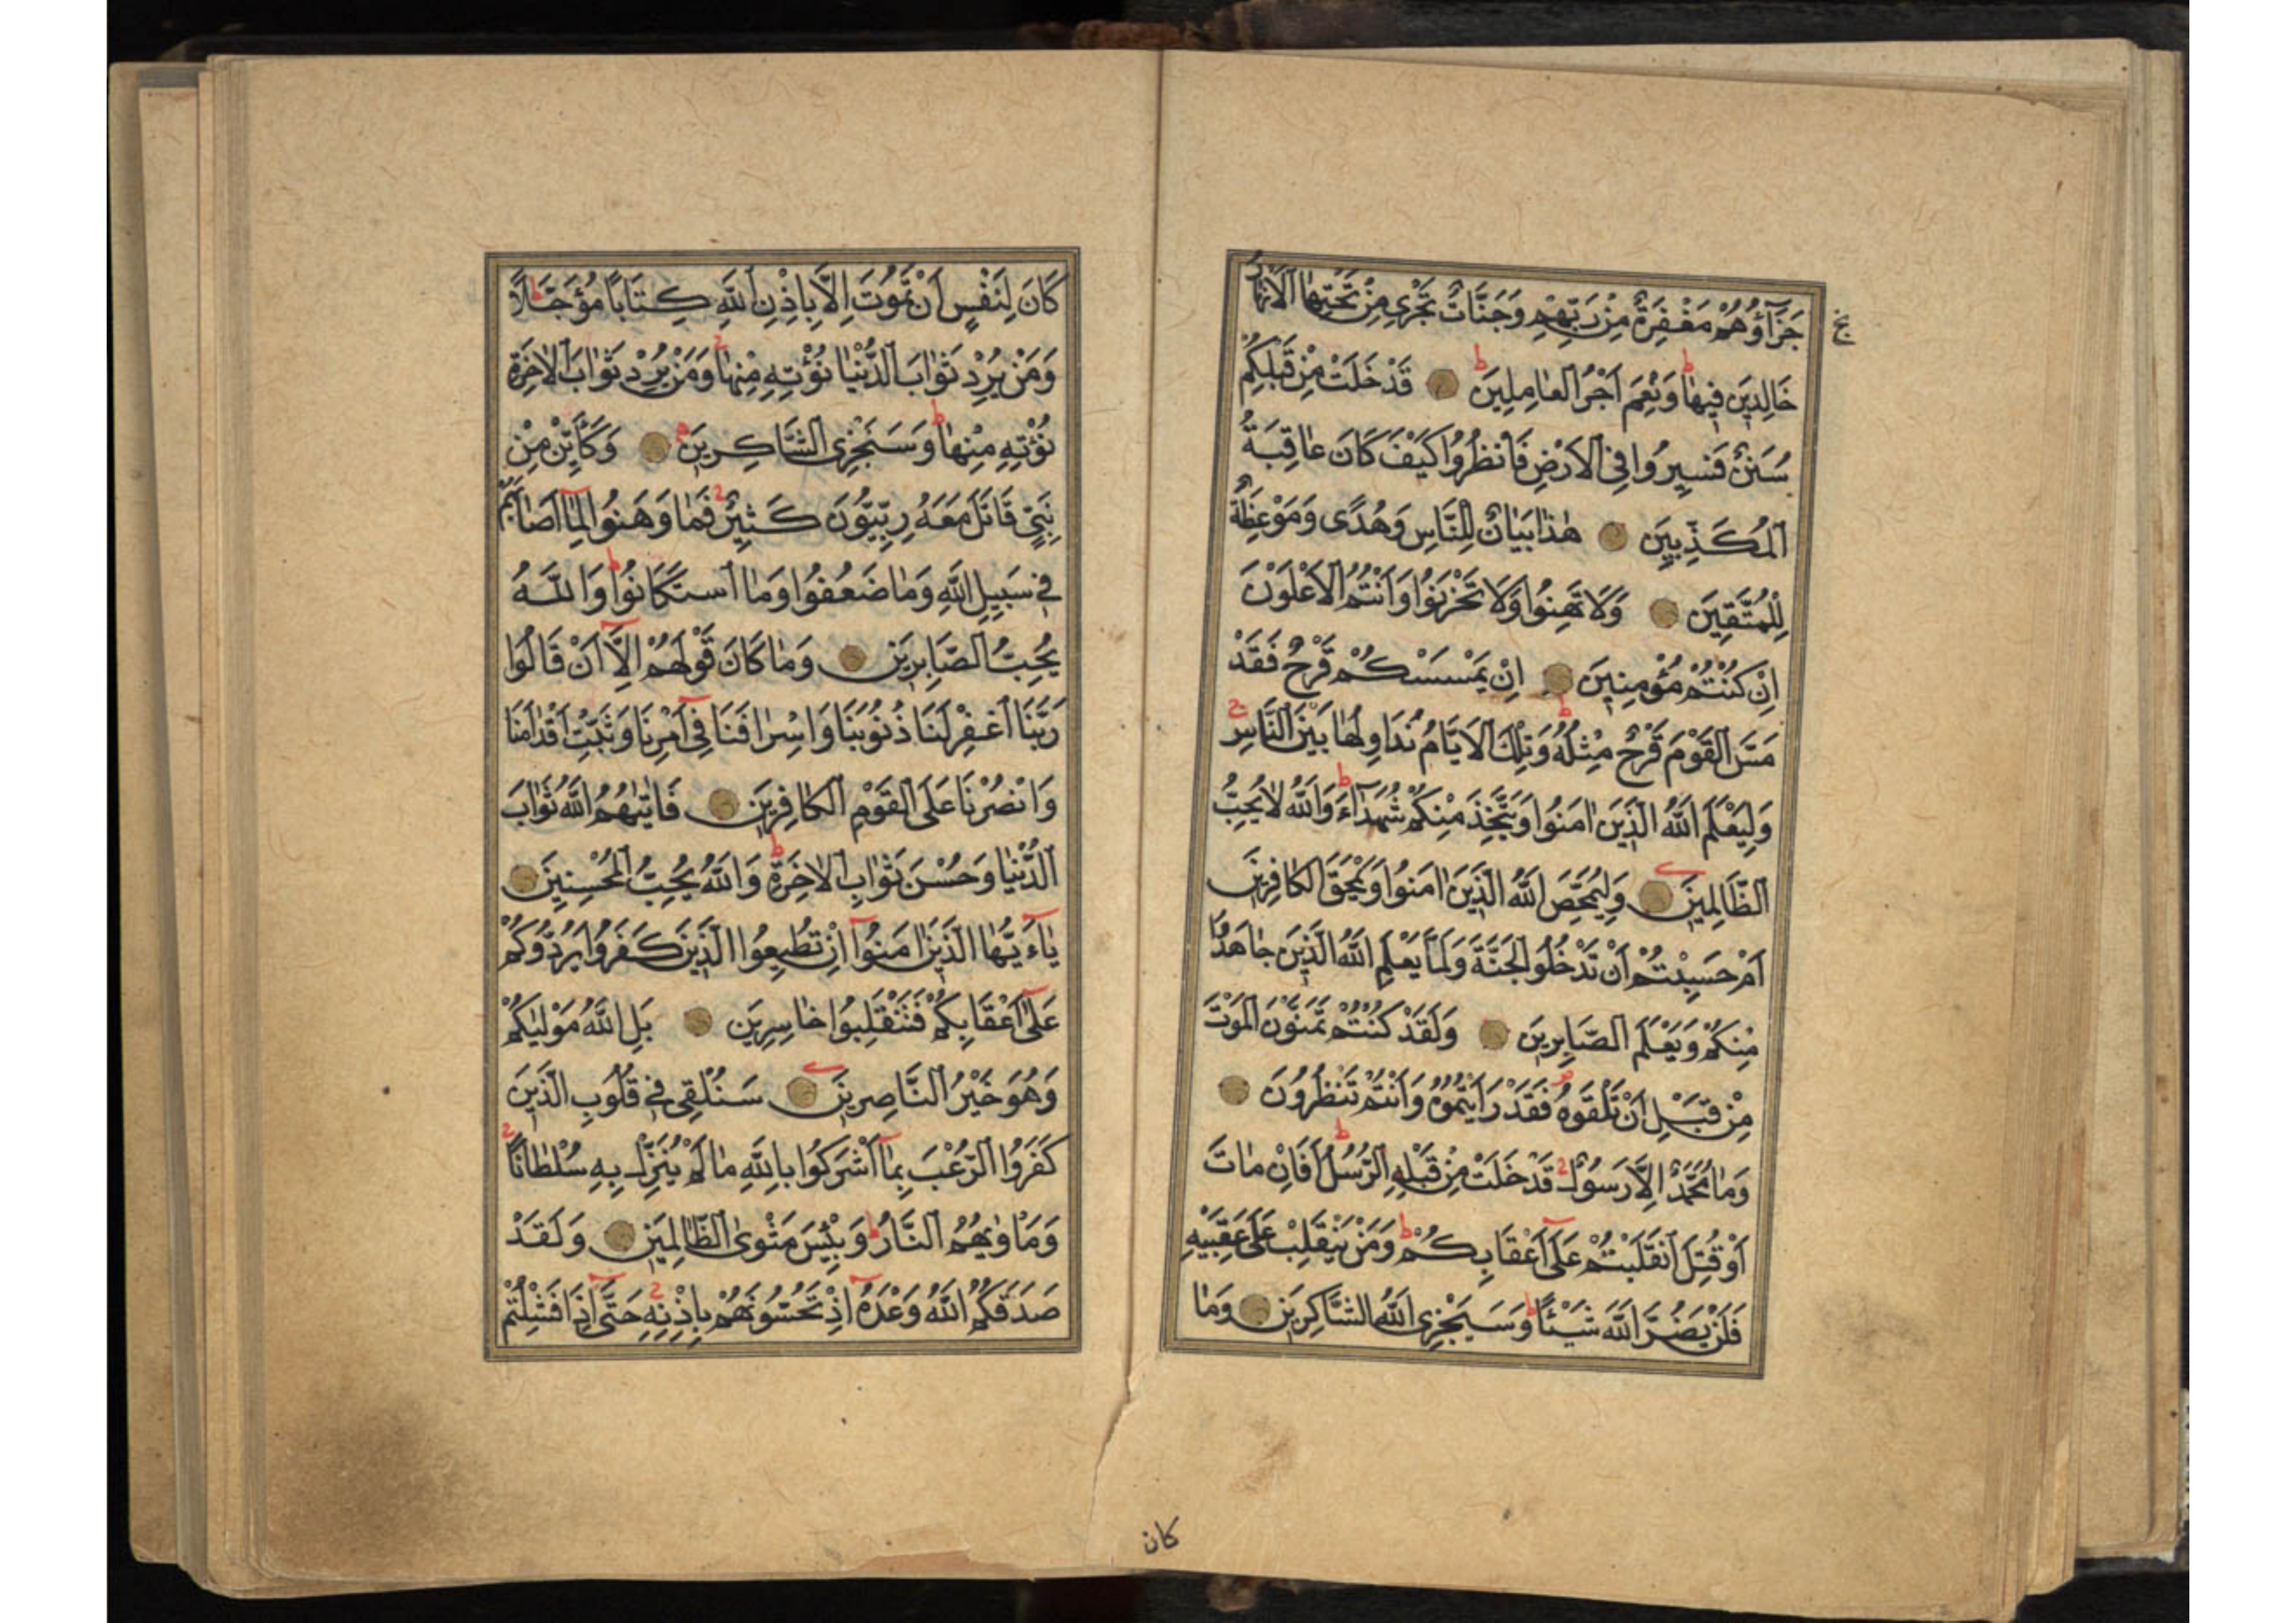 جَزَاؤُهُمْ مَغْفِرَةٌ مِنْ رَبِّهِمْ وَجَنَّاتٌ تَجْرِي مِنْ تَحْتِهَا الْاَنْهَارُ
خَالِدِينَ فِيهَا وَنِعْمَ اَجْرُ الْعَامِلِينَ قَدْ خَلَتْ مِنْ قَبْلِكُمْ
سُنَنٌ فَسِيرُوا فِي الْاَرْضِ فَانْظُرُوا كَيْفَ كَانَ عَاقِبَةُ
الْمُكَذِّبِينَ هٰذَا بَيَانٌ لِلنَّاسِ وَهُدًى وَمَوْعِظَةٌ
لِلْمُتَّقِينَ وَلَا تَهِنُوا وَلَا تَحْزَنُوا وَاَنْتُمُ الْاَعْلَوْنَ
اِنْ كُنْتُمْ مُؤْمِنِينَ اِنْ يَمْسَسْكُمْ قَرْحٌ فَقَدْ
مَسَّ الْقَوْمَ قَرْحٌ مِثْلُهُ وَتِلْكَ الْاَيَّامُ نُدَاوِلُهَا بَيْنَ النَّاسِ
وَلِيَعْلَمَ اللّٰهُ الَّذِينَ اٰمَنُوا وَيَتَّخِذَ مِنْكُمْ شُهَدَاءَ وَاللّٰهُ لَا يُحِبُّ
الظَّالِمِينَ وَلِيُمَحِّصَ اللّٰهُ الَّذِينَ اٰمَنُوا وَيَمْحَقَ الْكَافِرِينَ
اَمْ حَسِبْتُمْ اَنْ تَدْخُلُوا الْجَنَّةَ وَلَمَّا يَعْلَمِ اللّٰهُ الَّذِينَ جَاهَدُوا
مِنْكُمْ وَيَعْلَمَ الصَّابِرِينَ وَلَقَدْ كُنْتُمْ تَمَنَّوْنَ الْمَوْتَ
مِنْ قَبْلِ اَنْ تَلْقَوْهُ فَقَدْ رَاَيْتُمُوهُ وَاَنْتُمْ تَنْظُرُونَ
وَمَا مُحَمَّدٌ اِلَّا رَسُولٌ قَدْ خَلَتْ مِنْ قَبْلِهِ الرُّسُلُ اَفَاِنْ مَاتَ
اَوْ قُتِلَ انْقَلَبْتُمْ عَلٰى اَعْقَابِكُمْ وَمَنْ يَنْقَلِبْ عَلٰى عَقِبَيْهِ
فَلَنْ يَضُرَّ اللّٰهَ شَيْئًا وَسَيَجْزِي اللّٰهُ الشَّاكِرِينَ وَمَا
كان
كَانَ لِنَفْسٍ اَنْ تَمُوتَ اِلَّا بِاِذْنِ اللّٰهِ كِتَابًا مُؤَجَّلًا
وَمَنْ يُرِدْ ثَوَابَ الدُّنْيَا نُؤْتِهِ مِنْهَا وَمَنْ يُرِدْ ثَوَابَ الْاٰخِرَةِ
نُؤْتِهِ مِنْهَا وَسَنَجْزِي الشَّاكِرِينَ وَكَاَيِّنْ مِنْ
نَبِيٍّ قَاتَلَ مَعَهُ رِبِّيُّونَ كَثِيرٌ فَمَا وَهَنُوا لِمَا اَصَابَهُمْ
فِي سَبِيلِ اللّٰهِ وَمَا ضَعُفُوا وَمَا اسْتَكَانُوا وَاللّٰهُ
يُحِبُّ الصَّابِرِينَ وَمَا كَانَ قَوْلَهُمْ اِلَّا اَنْ قَالُوا
رَبَّنَا اغْفِرْ لَنَا ذُنُوبَنَا وَاِسْرَافَنَا فِي اَمْرِنَا وَثَبِّتْ اَقْدَامَنَا
وَانْصُرْنَا عَلَى الْقَوْمِ الْكَافِرِينَ فَاٰتٰيهُمُ اللّٰهُ ثَوَابَ
الدُّنْيَا وَحُسْنَ ثَوَابِ الْاٰخِرَةِ وَاللّٰهُ يُحِبُّ الْمُحْسِنِينَ
يَاءَيُّهَا الَّذِينَ اٰمَنُوا اِنْ تُطِيعُوا الَّذِينَ كَفَرُوا يَرُدُّوكُمْ
عَلٰى اَعْقَابِكُمْ فَتَنْقَلِبُوا خَاسِرِينَ بَلِ اللّٰهُ مَوْلٰيكُمْ
وَهُوَ خَيْرُ النَّاصِرِينَ سَنُلْقِي فِي قُلُوبِ الَّذِينَ
كَفَرُوا الرُّعْبَ بِمَا اَشْرَكُوا بِاللّٰهِ مَا لَمْ يُنَزِّلْ بِهِ سُلْطَانًا
وَمَاْوٰيهُمُ النَّارُ وَبِئْسَ مَثْوَى الظَّالِمِينَ وَلَقَدْ
صَدَقَكُمُ اللّٰهُ وَعْدَهُ اِذْ تَحُسُّونَهُمْ بِاِذْنِهِ حَتّٰى اِذَا فَشِلْتُمْ